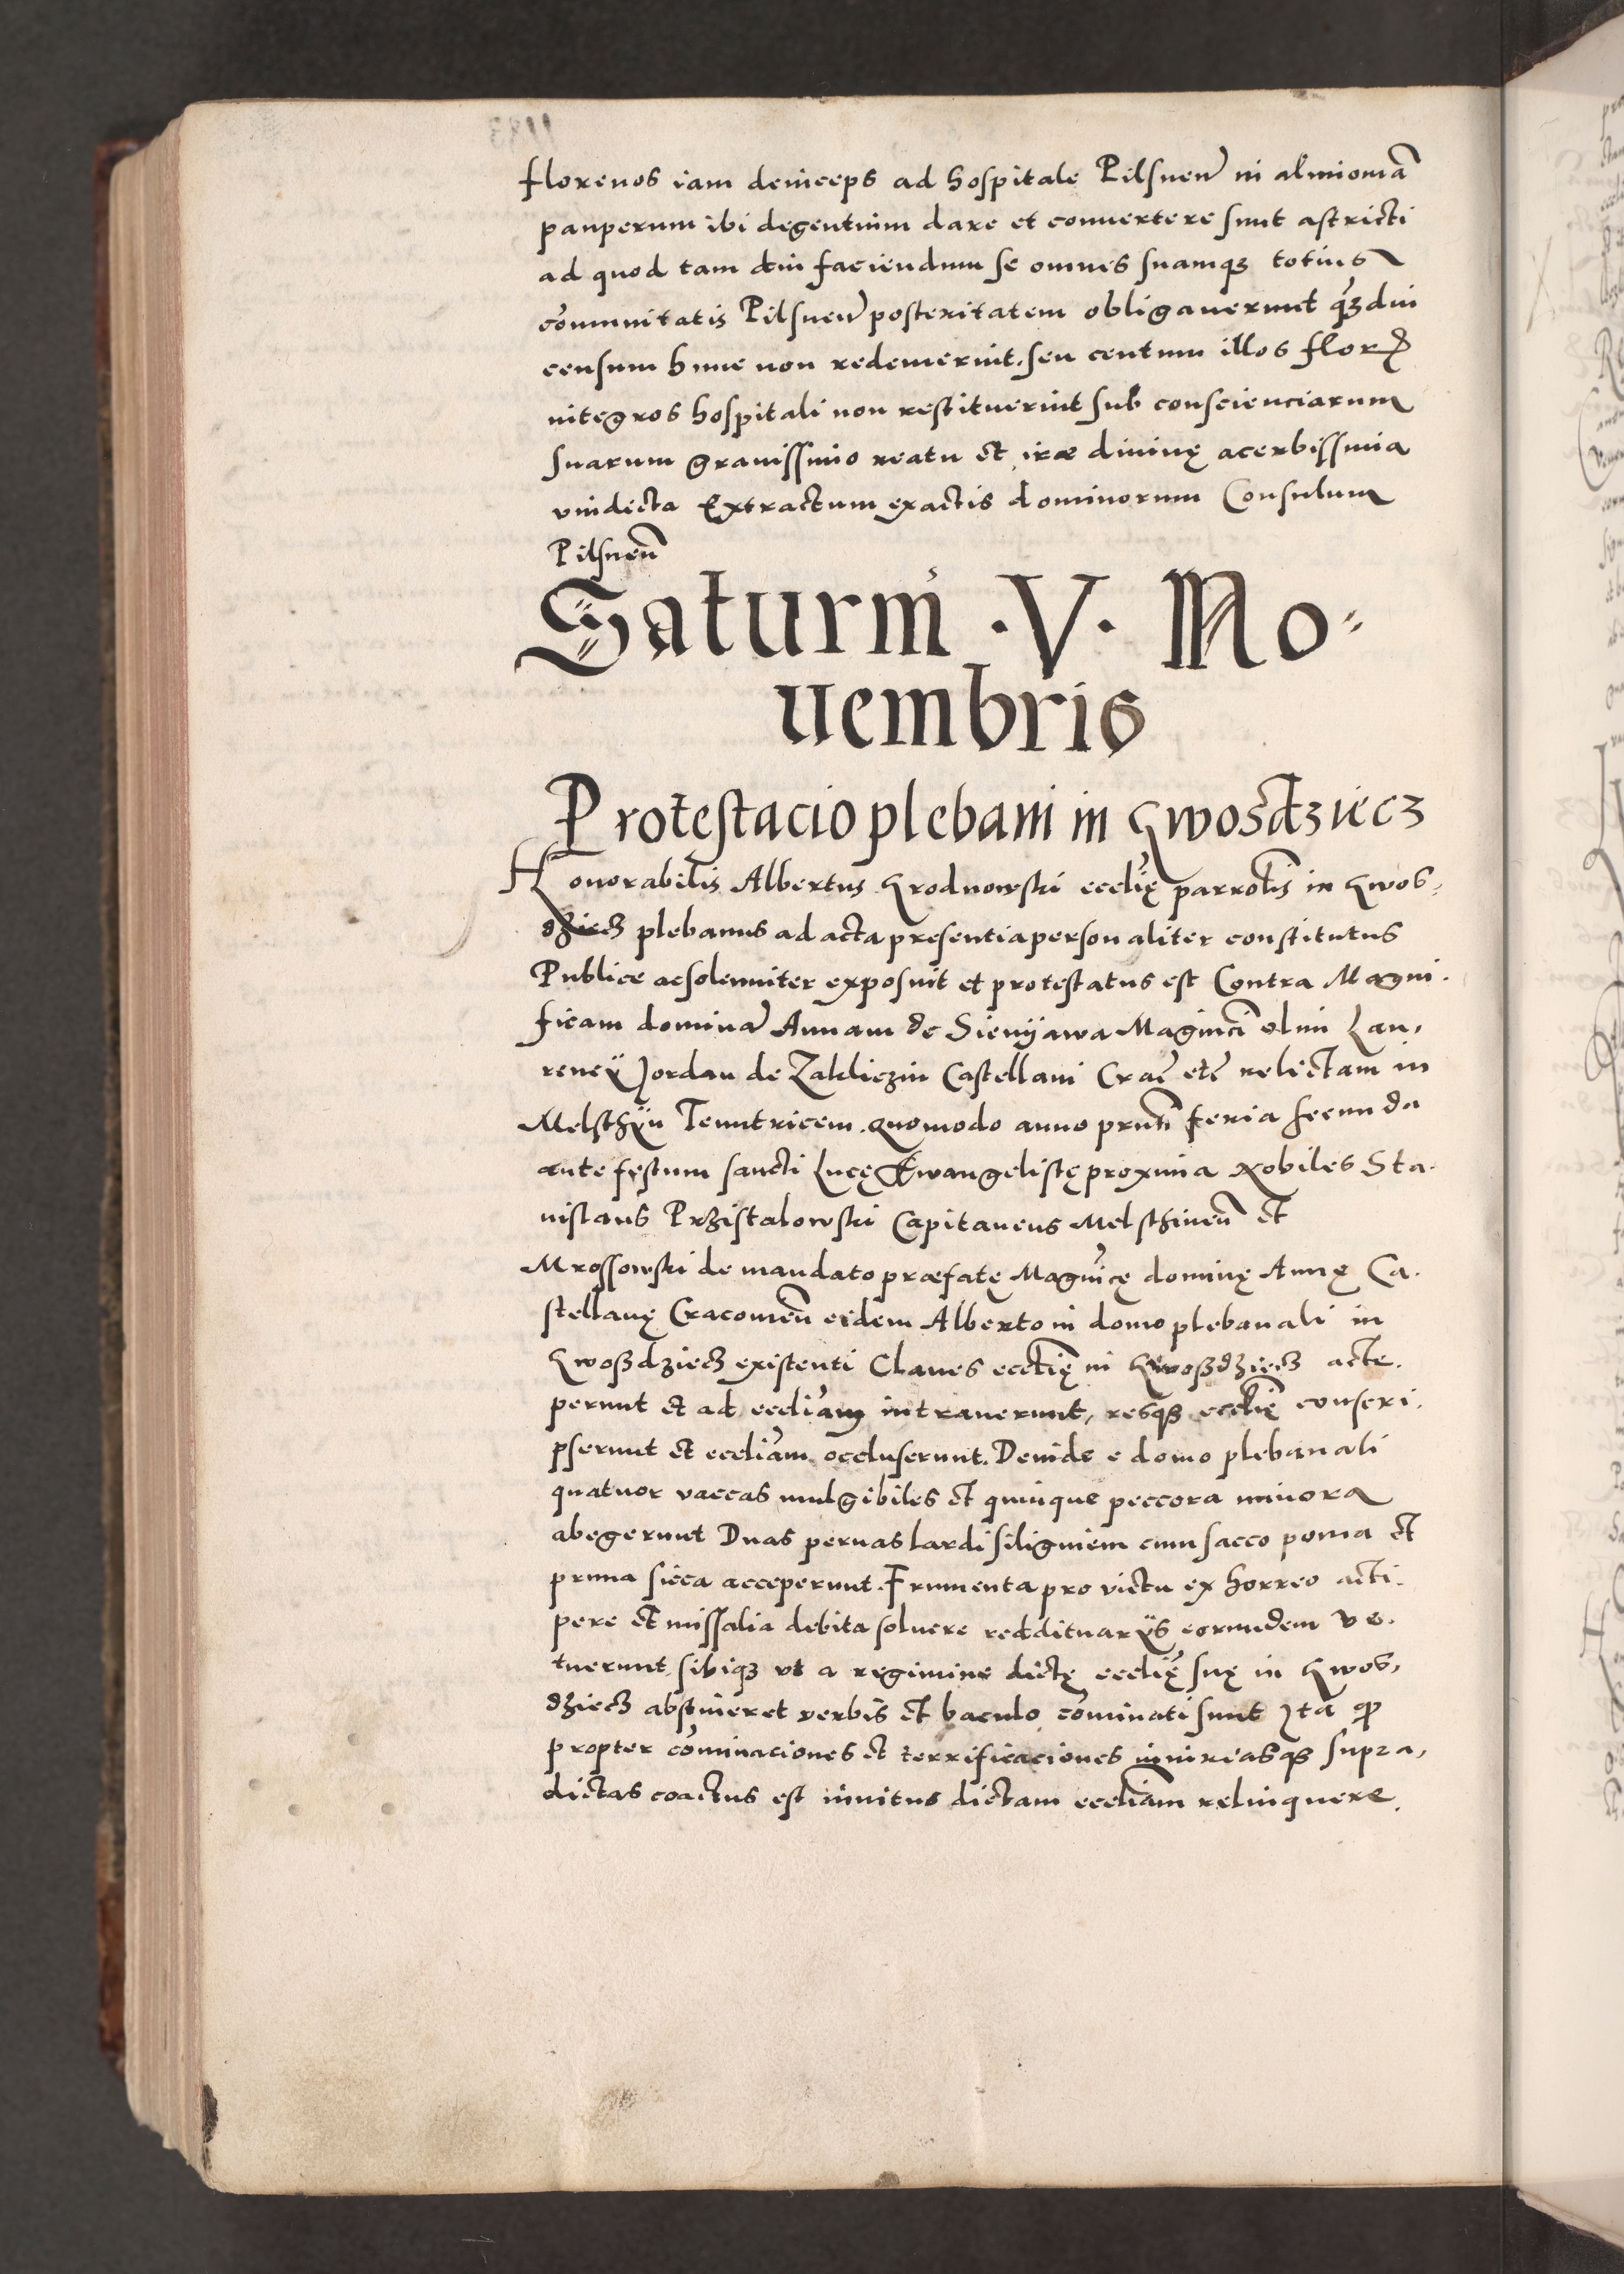 florenos iam deinceps ad hospitale Pilsnen̄ in alimoniā
pauperum ibi degentium dare et conuertere sunt astricti
ad quod tam diu faciendum se omnes suamqȝ totius
cōmunitatis Pilsnen̄ posteritatem obligauerunt qȝ diu
censum hunc non redemerint. seu centum illos flor
integros hospitali non restituerint sub conscienciarum
suarum grauissimo reatu et iræ diuinę acerbissima
vindicta Extractum ex actis dominorum Consulum
Pilsnen̄
Saturni ·V· No-
uembris
Protestacio plebani in Gwosdziecz
Honorabilis Albertus Grodnowski eccłię parrotłis in Gwos-
dziecz plebanus ad acta presentia personaliter constitutus
Publice ac solenniter exposuit et protestatus est Contra Magni-
ficam dominā Annam de Sienÿawa Magnīci olim Lau-
rencÿ Jordan de Zakliczin Castellani Crac̄ etc̄ relictam in
Melschtÿn Tenutricem. quomodo anno prn̄ti feria secunda
ante festum sancti Lucę Ewangelistę proxima Nobiles Sta-
nislaus Przistalowski Capitaneus Melschtinen̄ et
Mrossowski de mandato præfatę Magnīcę dominę Annę Ca-
stellanę Cracouien̄ eidem Alberto in domo plebanali in
Gwoßdziecz existenti Claues eccłię in Gwoßdziecz acce-
perunt et ad eccłiam intrauerunt, resqȝ eccłię conscri-
pserunt et eccłiam occluserunt. Deinde e domo plebanali
quatuor vaccas mulgibiles et quinque peccora minora
abegerunt Duas pernas lardi siliginem cum sacco poma et
pruna sicca acceperunt. Frumenta pro victu ex horreo acci-
pere et missalia debita soluere reddituarÿs eorundem ve-
tuerunt, sibiqȝ vt a regimine dictę eccłię suę in Gwos-
dziecz abstineret verbis et baculo cōminati sunt Ita qp
propter cōminaciones et terrificaciones iniuriasqȝ supra-
dictas coactus est inuitus dictam eccłiam relinquere.